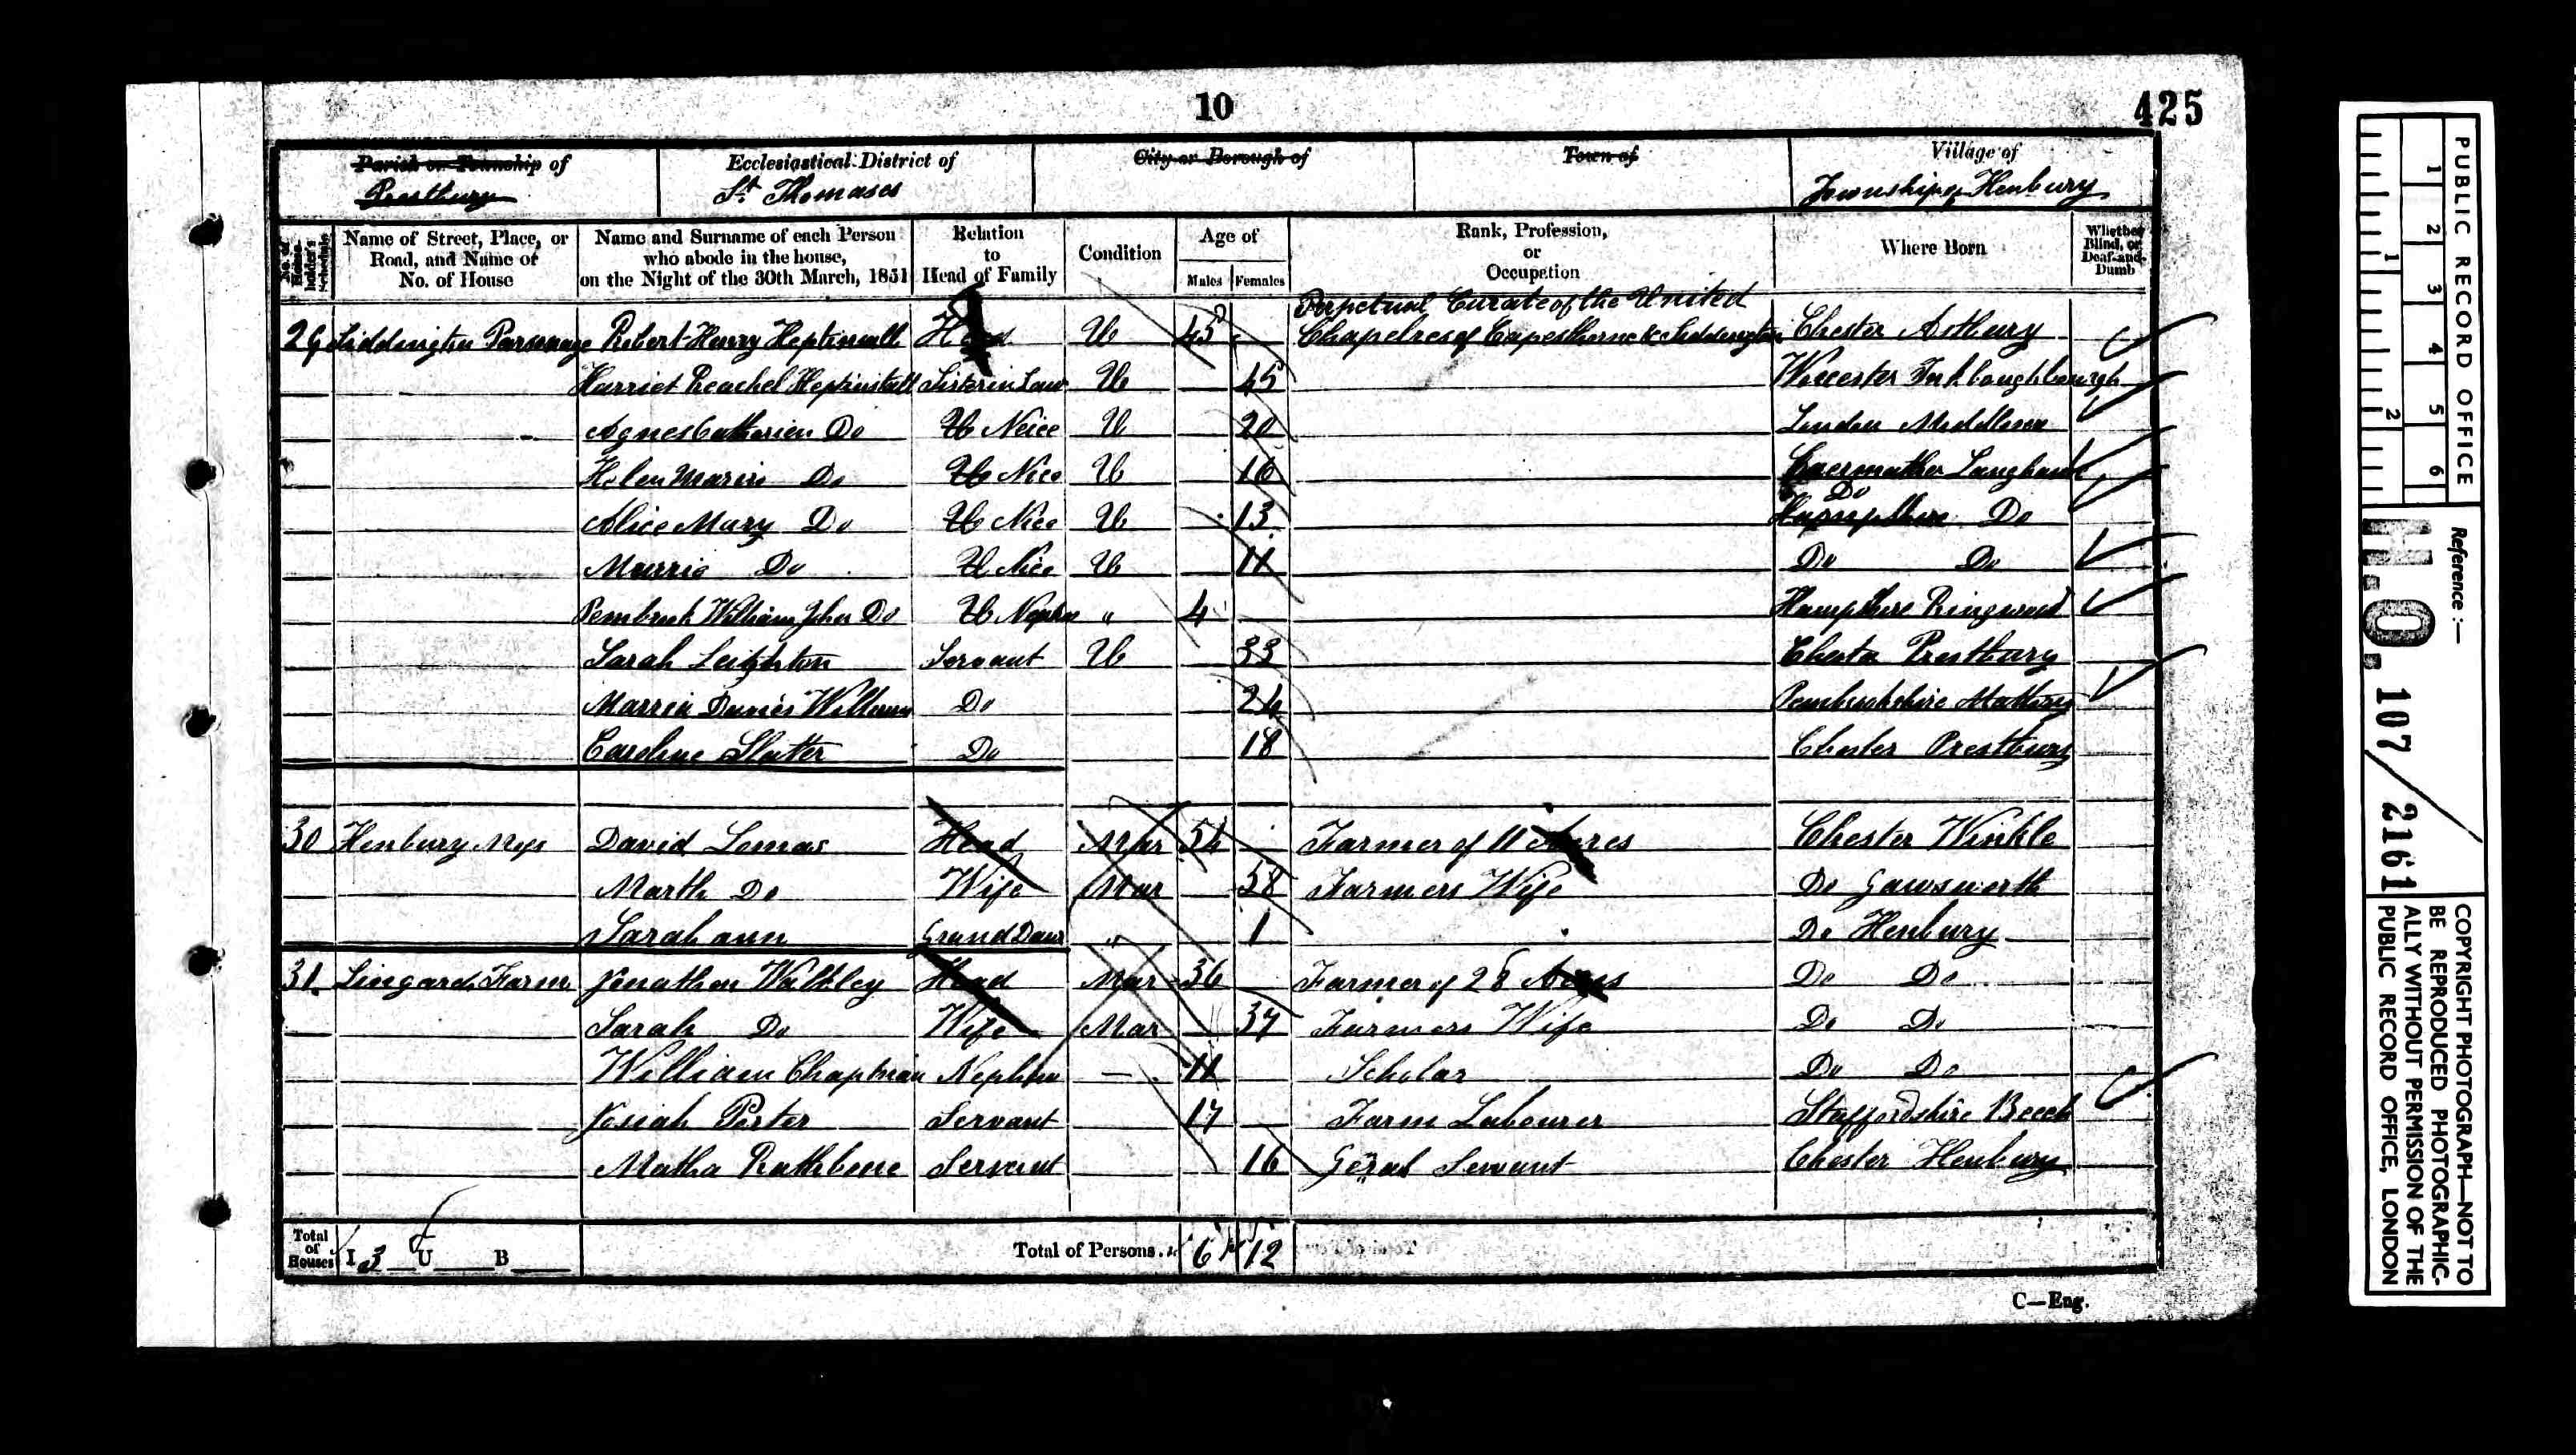 10
425
Parish or Township of
Prestbury
Ecclesiastical District of
St Thomases
City or Borough of
Town of
Village of
Township of Henbury
No. of Householder's Schedule
Name of Street, Place, or Road, and Name or No. of House
Name and Surname of each Person who abode in the house, on the Night of the 30th March, 1851
Relation to Head of Family
Condition
Age of
Males Females
Rank, Profession, or Occupation
Where Born
Whether Blind, or Deaf-and-Dumb
Perpetual Curate of the United
29 Siddington Parsonage Robert Henry Heptinstall Head U 45 Chapelries of Capesthorne & Siddington Chester Astbury
Harriet Reachel Heptinstall Sister in Law U 45 Worcester
Agnes Catharien Do U Neice U 20 London Middlesex
Helen Do U Nice U 16 Caermather
Do
Alice Mary Do U Nice U 13 Hampshire Do
Do U Nice U 11 Do Do
Pembrook William John Do U Nephew " 4 Hampshire Ringwood
Sarah Leighton Servant U 33 Chester Prestbury
Marria Davies Williams Do 24 Pembrookshire
Caroline Slatter Do 18 Chester Prestbury
30 Henbury David Lomas Head Mar 54 Farmer of 11 Acres Chester Winkle
Marth Do Wife Mar 58 Farmers Wife Do Gawsworth
Sarah ann Grand Daur " 1 Do Henbury
31 Lingards Farm Jonathan Walkley Head Mar 36 Farmer of 28 Acres Do Do
Sarah Do Wife Mar 37 Farmers Wife Do Do
William Chapman Nephew — 11 Scholar Do Do
Josiah Porter Servant 17 Farm Labourer Staffordshire Beech
Matha Rathbone Servant 16 Geral Servant Chester Henbury
Total of Houses I 3 U B Total of Persons 6 12
C—Eng.
PUBLIC RECORD OFFICE
1 2 3 4 5 6
1 2
Reference :—
H.O. 107 / 2161
COPYRIGHT PHOTOGRAPH—NOT TO
BE REPRODUCED PHOTOGRAPHIC-
ALLY WITHOUT PERMISSION OF THE
PUBLIC RECORD OFFICE, LONDON